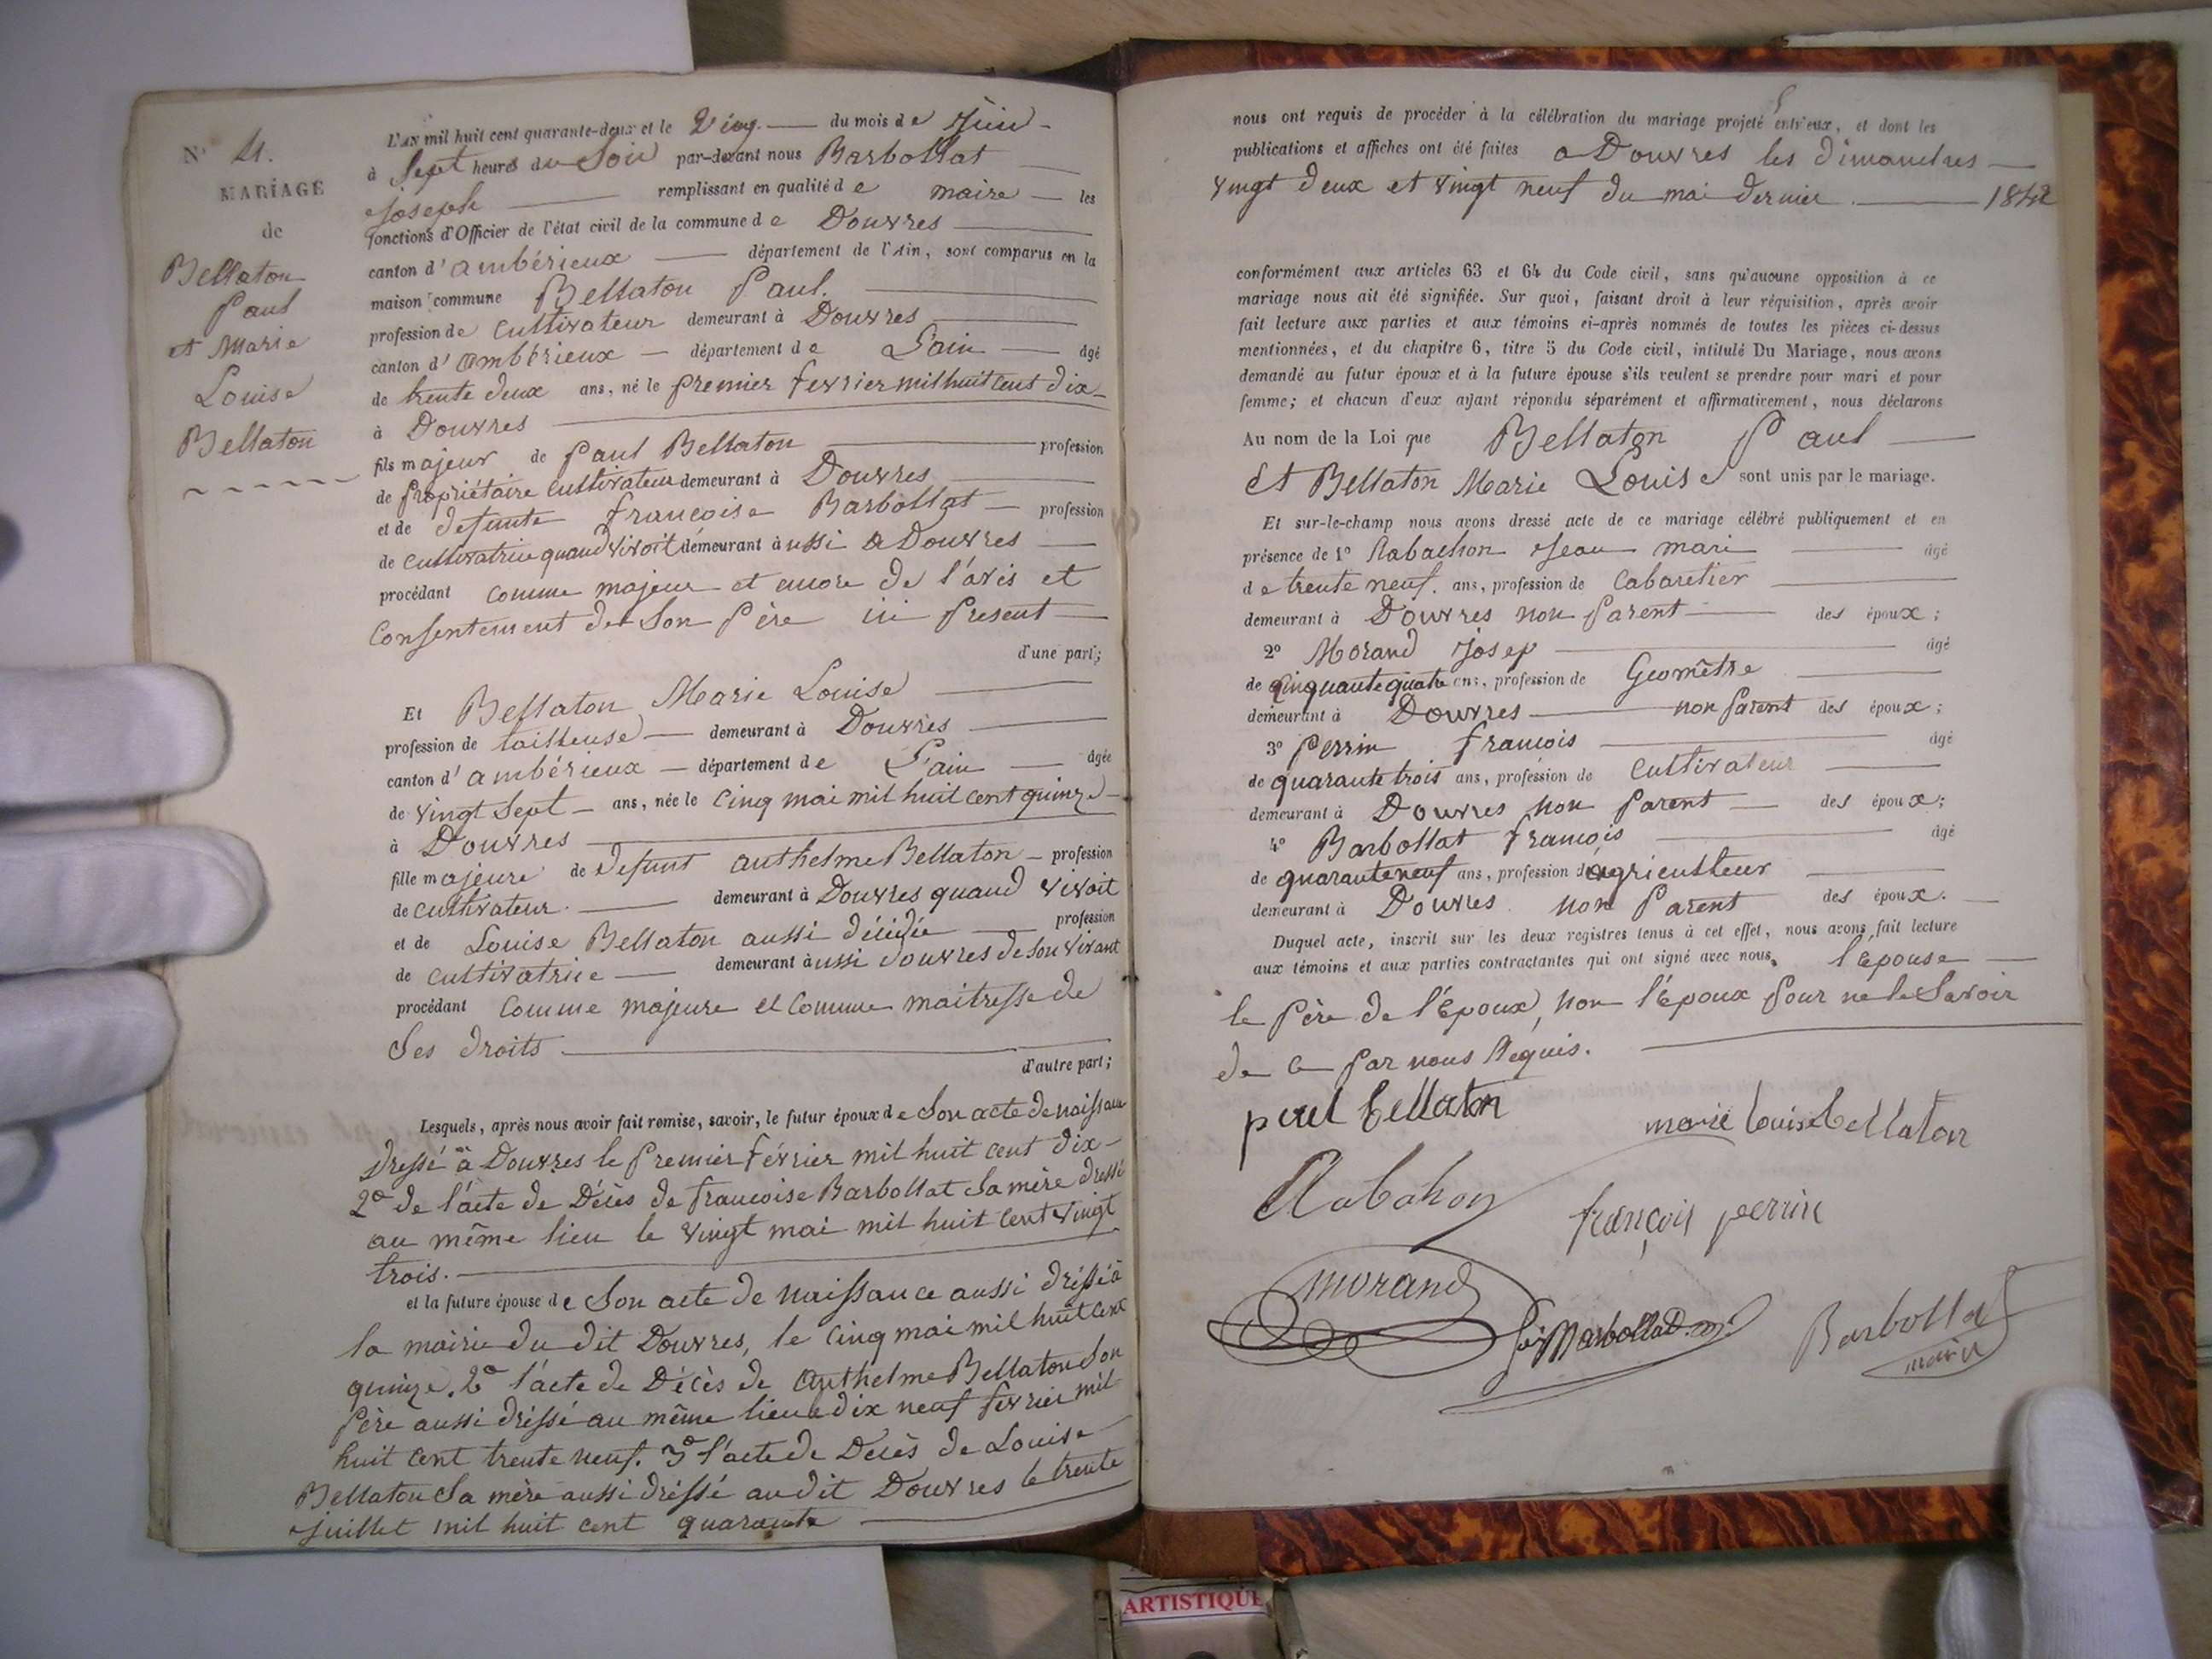 N° 4.
MARIAGE
de
Bellaton
Paul
et Marie
Louise
Bellaton
L'AN mil huit cent quarante-deux et le du mois de Juin
à Sept heures du Soir par-devant nous Barbollat
Joseph remplissant en qualité de maire les
fonctions d'Officier de l'état civil de la commune de Douvres
canton d'ambérieux département de l'Ain, sont comparus en la
maison commune Bellaton Paul.
profession de Cultivateur demeurant à Douvres
canton d'ambérieux département de L'ain âgé
de trente deux ans, né le premier fevrier mil huit cent dix
à Douvres
fils majeur de Paul Bellaton profession
de propriétaire cultivateur demeurant à Douvres
et de defunte francoise Barbollat profession
de cultivatrice quand vivoit demeurant àussi a Douvres
procédant comme majeur et encore de l'avis et
Consentement de Son Père ici Present
d'une part;
Et Bellaton Marie Louise
profession de tailleuse demeurant à Douvres
canton d'ambérieux département de L'ain âgée
de vingt Sept ans, née le Cinq mai mil huit cent quinze
à Douvres
fille majeure de defunt anthelme Bellaton profession
de cultivateur. demeurant à Douvres quand vivoit
et de Louise Bellaton aussi décédée profession
de cultivatrice demeurant àussi douvres de son vivant
procédant comme majeure et comme maitresse de
Ses droits
d'autre part;
Lesquels, après nous avoir fait remise, savoir, le futur époux de Son acte de naissance
Dressé à Douvres le Premier Février mil huit cent dix
2° de l'acte de Décès de francoise Barbollat Sa mère dressé
au même lieu le vingt mai mil huit cent vingt
trois.
et la future épouse de Son acte de naissance aussi dréssé à
la mairie du dit Douvres, le cinq mai mil huit cent
quinze. 2° l'acte de Décès de Anthelme Bellaton Son
père aussi dréssé au même lieu dix neuf fevrier mil
huit cent trente neuf. 3° l'acte de Décès de Louise
Bellaton Sa mère aussi dréssé au dit Douvres le trente
Juillet mil huit cent quarante
nous ont requis de procéder à la célébration du mariage projeté entr'eux, et dont les
publications et affiches ont été faites a Douvres les dimanches
vingt deux et vingt neuf du mai dernier. 1842
conformément aux articles 63 et 64 du Code civil, sans qu'aucune opposition à ce
mariage nous ait été signifiée. Sur quoi, faisant droit à leur réquisition, après avoir
fait lecture aux parties et aux témoins ci-après nommés de toutes les pièces ci-dessus
mentionnées, et du chapitre 6, titre 5 du Code civil, intitulé Du Mariage, nous avons
demandé au futur époux et à la future épouse s'ils veulent se prendre pour mari et pour
femme; et chacun d'eux ayant répondu séparément et affirmativement, nous déclarons
Au nom de la Loi que Bellaton Paul
Et Bellaton Marie Louise sont unis par le mariage.
Et sur-le-champ nous avons dressé acte de ce mariage célébré publiquement et en
présence de 1° Rabachon Jean mari âgé
de trente neuf. ans, profession de Cabaretier
demeurant à Douvres non Parent des époux;
2° Morand Josep âgé
de cinquante quatre ans, profession de Geomêtre
demeurant à Douvres non parent des époux;
3° Perrin francois âgé
de quarante trois ans, profession de Cultivateur
demeurant à Douvres non Parent des époux;
4° Barbollat Francois âgé
de quarante neuf ans, profession d'agriculteur
demeurant à Douvres non Parent des époux.
Duquel acte, inscrit sur les deux registres tenus à cet effet, nous avons fait lecture
aux témoins et aux parties contractantes qui ont signé avec nous, l'épouse
le Père de l'Epoux, non l'Epoux pour ne le Savoir
de ce par nous Requis.
paul bellaton
marie louise bellaton
Rabahon
françois perrin
morand
Barbollat
maire
ARTISTIQUE